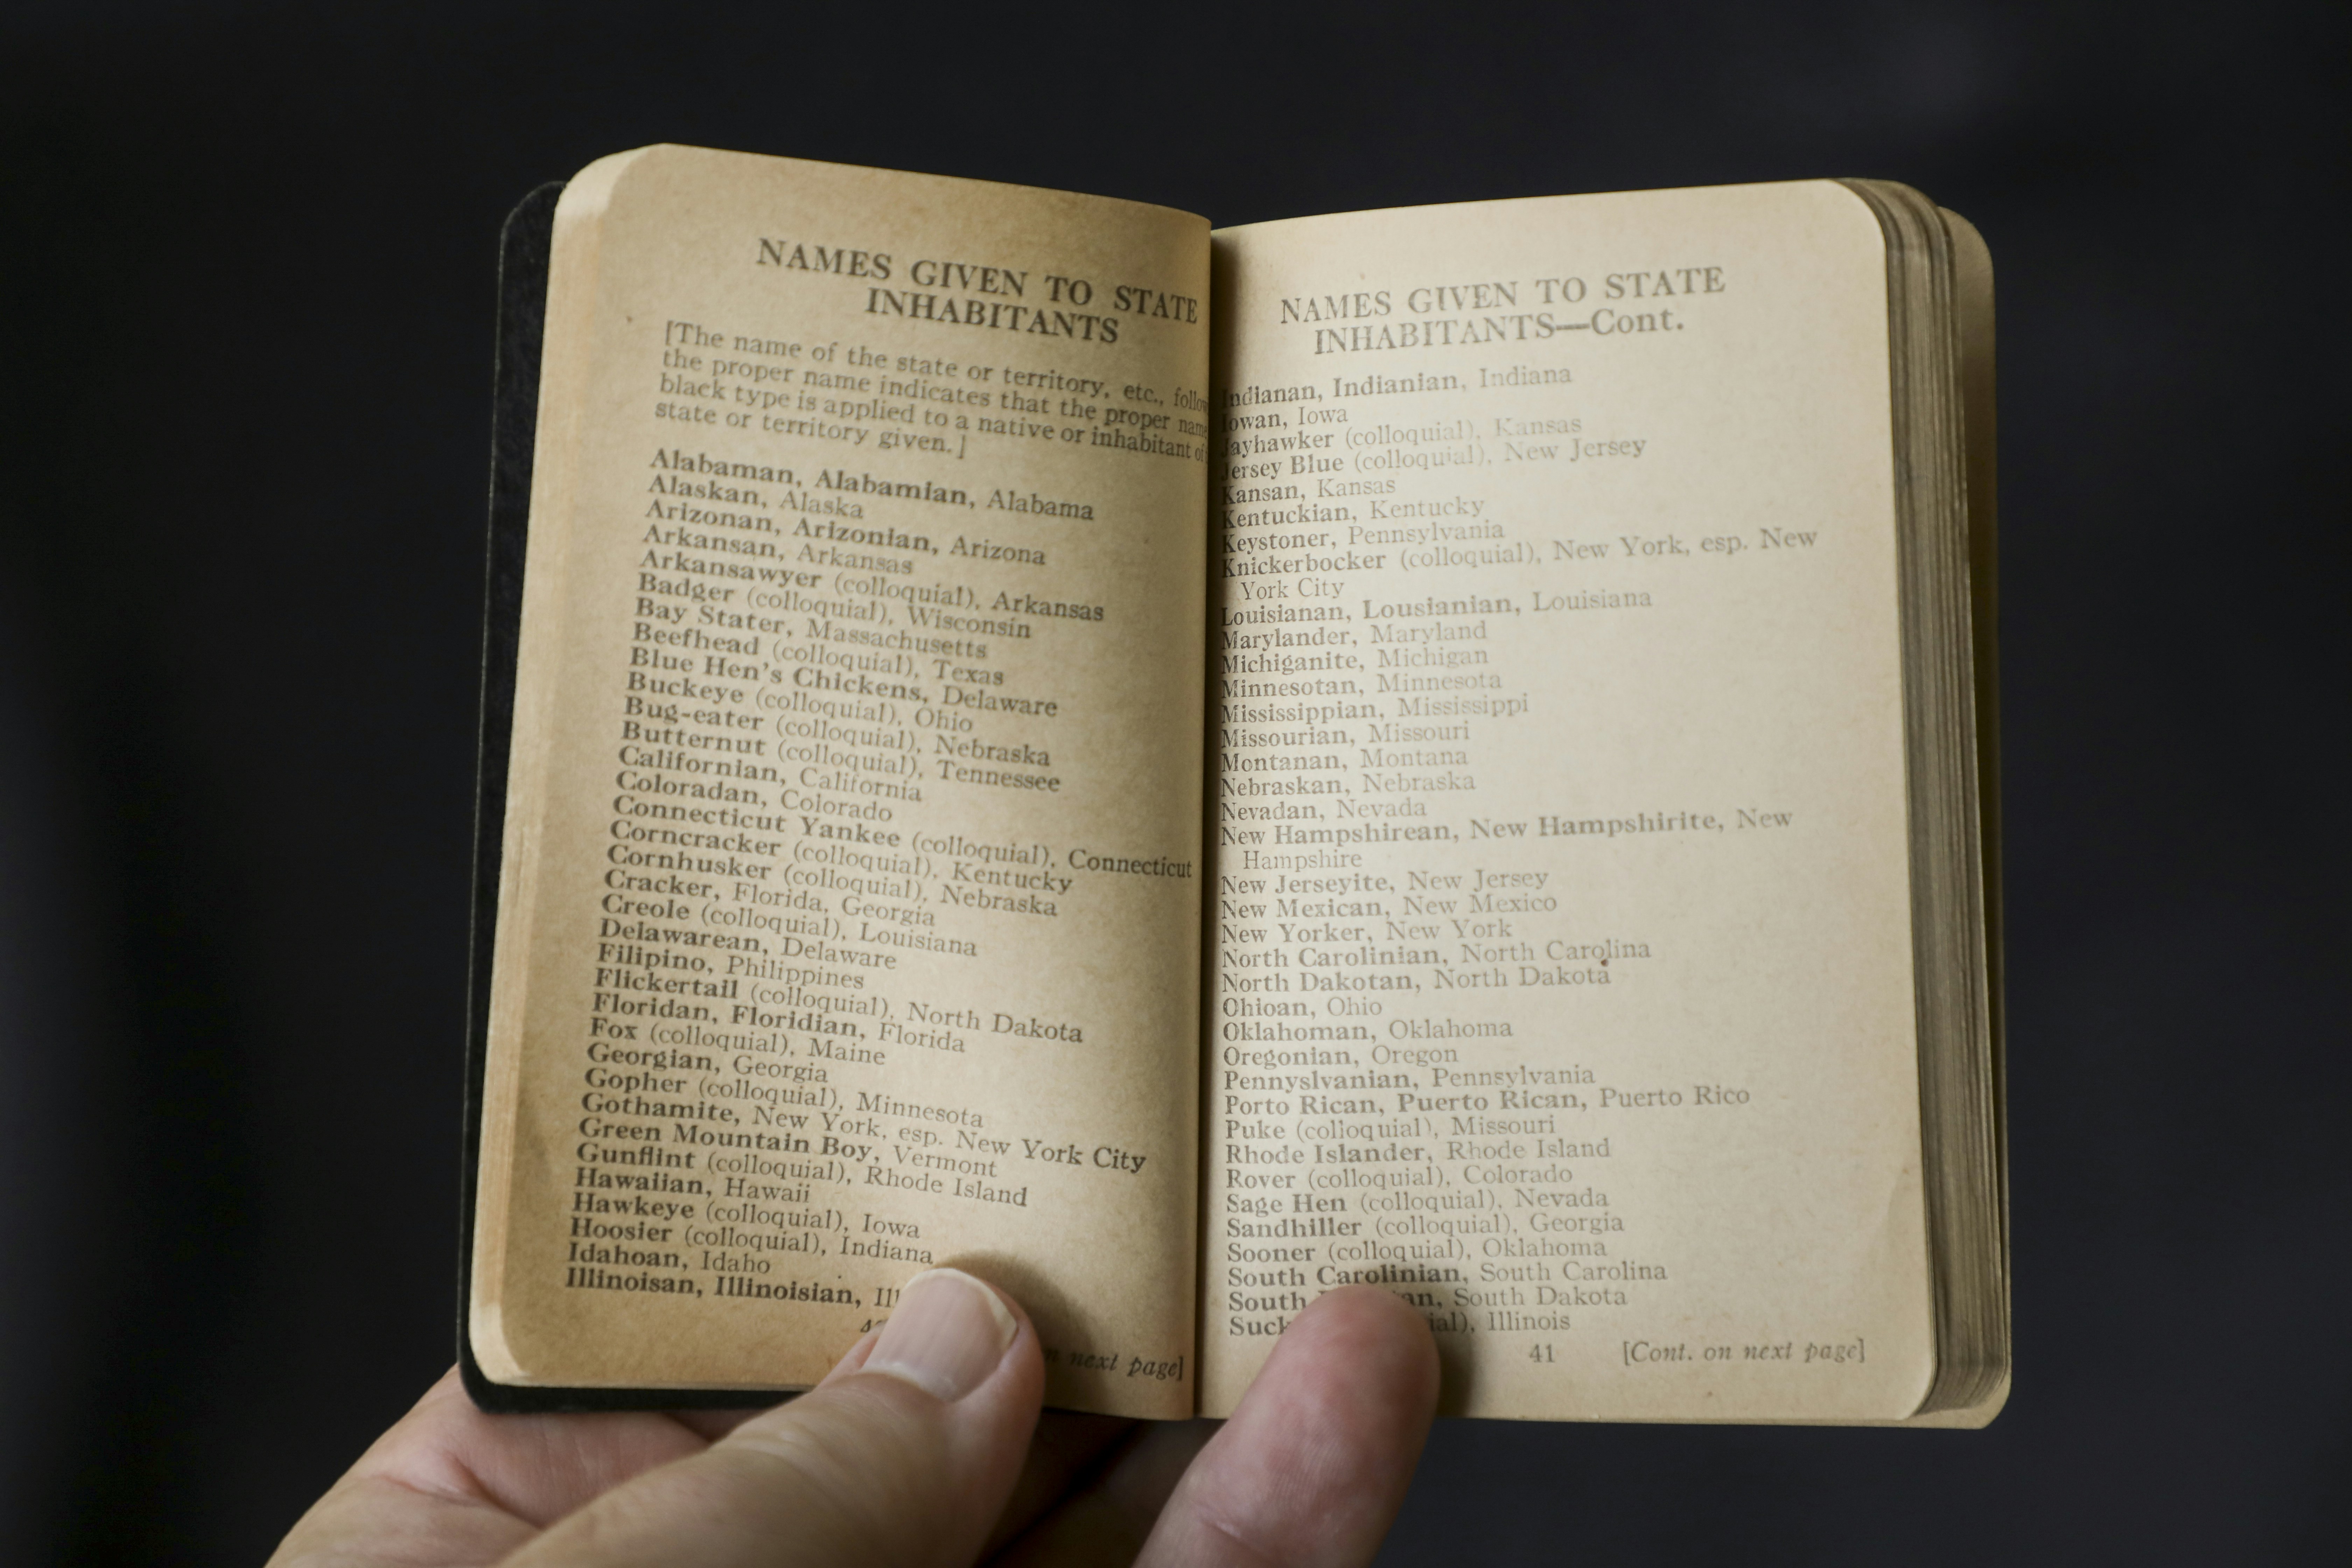 NAMES GIVEN TO STATE
INHABITANTS
[The name of the state or territory, etc., follow
the proper name indicates that the proper name
black type is applied to a native or inhabitant of
state or territory given.]
Alabaman, Alabamian, Alabama
Alaskan, Alaska
Arizonan, Arizonian, Arizona
Arkansan, Arkansas
Arkansawyer (colloquial), Arkansas
Badger (colloquial), Wisconsin
Bay Stater, Massachusetts
Beefhead (colloquial), Texas
Blue Hen's Chickens, Delaware
Buckeye (colloquial), Ohio
Bug-eater (colloquial), Nebraska
Butternut (colloquial), Tennessee
Californian, California
Coloradan, Colorado
Connecticut Yankee (colloquial), Connecticut
Corncracker (colloquial), Kentucky
Cornhusker (colloquial), Nebraska
Cracker, Florida, Georgia
Creole (colloquial), Louisiana
Delawarean, Delaware
Filipino, Philippines
Flickertail (colloquial), North Dakota
Floridan, Floridian, Florida
Fox (colloquial), Maine
Georgian, Georgia
Gopher (colloquial), Minnesota
Gothamite, New York, esp. New York City
Green Mountain Boy, Vermont
Gunflint (colloquial), Rhode Island
Hawaiian, Hawaii
Hawkeye (colloquial), Iowa
Hoosier (colloquial), Indiana
Idahoan, Idaho
Illinoisan, Illinoisian, Ill
next page]
NAMES GIVEN TO STATE
INHABITANTS—Cont.
Indianan, Indianian, Indiana
Iowan, Iowa
Jayhawker (colloquial), Kansas
Jersey Blue (colloquial), New Jersey
Kansan, Kansas
Kentuckian, Kentucky
Keystoner, Pennsylvania
Knickerbocker (colloquial), New York, esp. New
York City
Louisianan, Lousianian, Louisiana
Marylander, Maryland
Michiganite, Michigan
Minnesotan, Minnesota
Mississippian, Mississippi
Missourian, Missouri
Montanan, Montana
Nebraskan, Nebraska
Nevadan, Nevada
New Hampshirean, New Hampshirite, New
Hampshire
New Jerseyite, New Jersey
New Mexican, New Mexico
New Yorker, New York
North Carolinian, North Carolina
North Dakotan, North Dakota
Ohioan, Ohio
Oklahoman, Oklahoma
Oregonian, Oregon
Pennyslvanian, Pennsylvania
Porto Rican, Puerto Rican, Puerto Rico
Puke (colloquial), Missouri
Rhode Islander, Rhode Island
Rover (colloquial), Colorado
Sage Hen (colloquial), Nevada
Sandhiller (colloquial), Georgia
Sooner (colloquial), Oklahoma
South Carolinian, South Carolina
South an, South Dakota
Suck ial), Illinois
41 [Cont. on next page]